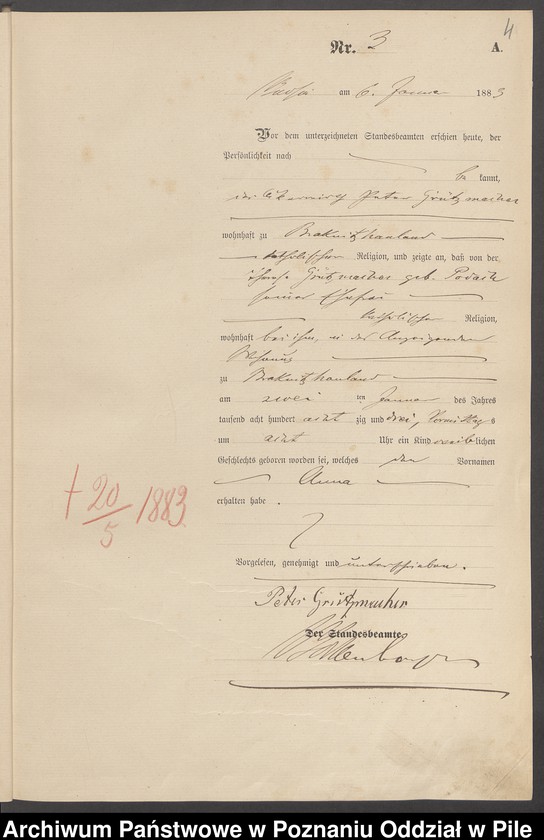 4
Nr. 3 A.
am 6. Januar 1883
Vor dem unterzeichneten Standesbeamten erschien heute, der
Persönlichkeit nach
be kannt,
der Peter Grützmacher
wohnhaft zu
katholischer Religion, und zeigte an, daß von der
Grützmacher geb.
seiner Ehefrau
katholischer Religion,
wohnhaft bei ihm, in der
Wohnung
zu
am zwei ten Januar des Jahres
tausend acht hundert acht zig und drei, Vormittag s
um acht Uhr ein Kind weib lichen
Geschlechts geboren worden sei, welches den Vornamen
Anna
erhalten habe.
† 20/5 1883
Vorgelesen, genehmigt und unterschrieben.
Peter Grützmacher
Der Standesbeamte
Archiwum Państwowe w Poznaniu Oddział w Pile